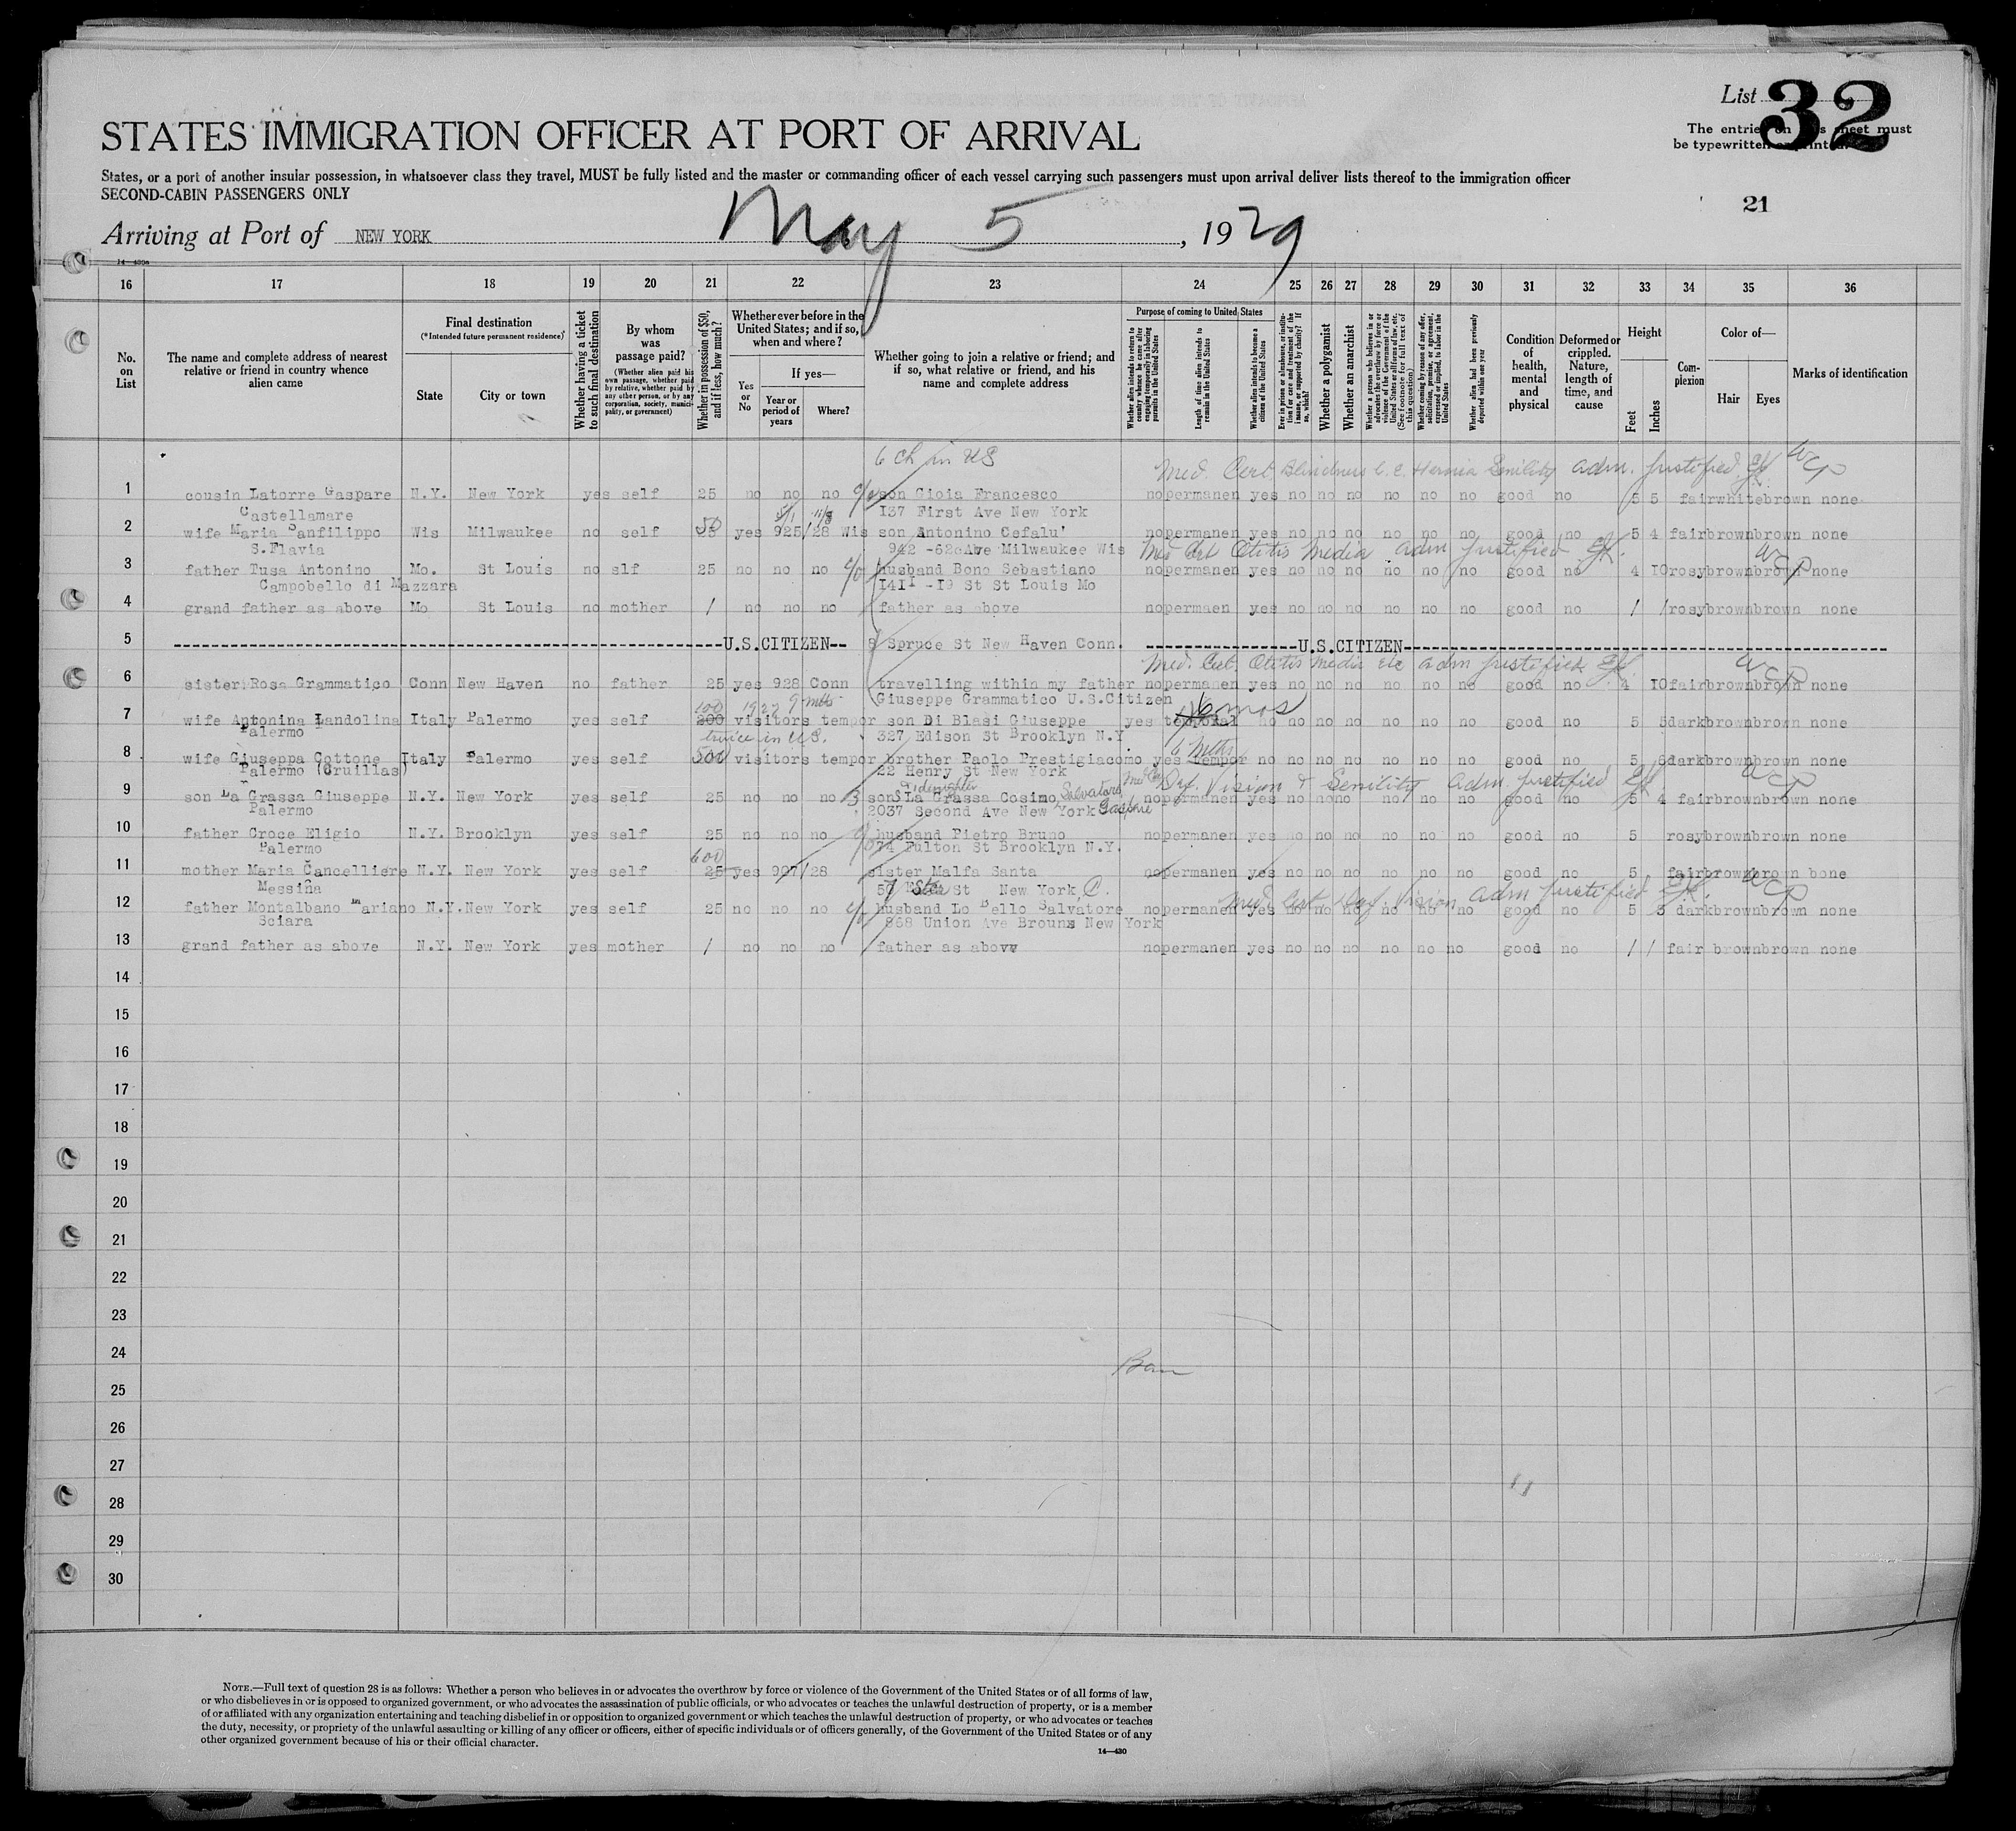 List 32
STATES IMMIGRATION OFFICER AT PORT OF ARRIVAL
The entries on this sheet must
be typewritten or printed.
States, or a port of another insular possession, in whatsoever class they travel, MUST be fully listed and the master or commanding officer of each vessel carrying such passengers must upon arrival deliver lists thereof to the immigration officer
SECOND-CABIN PASSENGERS ONLY
21
Arriving at Port of NEW YORK May 5, 1929
16 17 18 19 20 21 22 23 24 25 26 27 28 29 30 31 32 33 34 35 36
No. on List
The name and complete address of nearest relative or friend in country whence alien came
Final destination
(*Intended future permanent residence)
State
City or town
Whether having a ticket to such final destination
By whom was passage paid?
(Whether alien paid his own passage, whether paid by relative, whether paid by any other person, or by any corporation, society, municipality, or government)
Whether in possession of $50, and if less, how much?
Whether ever before in the United States; and if so, when and where?
Yes or No
If yes—
Year or period of years
Where?
Whether going to join a relative or friend; and if so, what relative or friend, and his name and complete address
Purpose of coming to United States
Whether alien intends to return to country whence he came after engaging temporarily in laboring pursuits in the United States
Length of time alien intends to remain in the United States
Whether alien intends to become a citizen of the United States
Ever in prison or almshouse, or institution for care and treatment of the insane, or supported by charity? If so, which?
Whether a polygamist
Whether an anarchist
Whether a person who believes in or advocates the overthrow by force or violence of the Government of the United States or all forms of law, etc. (See footnote for full text of this question)
Whether coming by reason of any offer, solicitation, promise, or agreement, expressed or implied, to labor in the United States
Whether alien had been previously deported within one year
Condition of health, mental and physical
Deformed or crippled. Nature, length of time, and cause
Height
Feet
Inches
Complexion
Color of—
Hair
Eyes
Marks of identification
6 ch in US Med. Cert. Blindness Hernia Senility adm. justified
1 cousin Latorre Gaspare N.Y. New York yes self 25 no no no son Gioia Francesco no permanen yes no no no no no no good no 5 5 fair white brown none
Castellamare 137 First Ave New York
2 wife Maria Sanfilippo Wis Milwaukee no self 50 yes 925/28 Wis son Antonino Cefalu' no permanen yes no no no no no no good no 5 4 fair brown brown none
S.Flavia 942 -62e Ave Milwaukee Wis Med Cert Otitis Media adm justified
3 father Tusa Antonino Mo. St Louis no slf 25 no no no husband Bono Sebastiano no permanen yes no no no no no no good no 4 10 rosy brown brown none
Campobello di Mazzara 1411 -19 St St Louis Mo
4 grand father as above Mo St Louis no mother / no no no father as above no permaen yes no no no no no no good no / / rosy brown brown none
5 U.S.CITIZEN 8 Spruce St New Haven Conn. U.S.CITIZEN
Med. Cert. Otitis Media etc adm justified
6 sister Rosa Grammatico Conn New Haven no father 25 yes 928 Conn travelling within my father no permanen yes no no no no no no good no 4 10 fair brown brown none
Giuseppe Grammatico U.S.Citizen
100 1922 9 mths 6 mos
7 wife Antonina Landolina Italy Palermo yes self 200 visitors tempor son Di Blasi Giuseppe yes no no no no no no no good no 5 5 dark brown brown none
Palermo twice in U.S. 327 Edison St Brooklyn N.Y
6 Mths
8 wife Giuseppa Cottone Italy Palermo yes self 500 visitors tempor brother Paolo Prestigiacomo yes tempor no no no no no no no good no 5 6 dark brown brown none
Palermo (Cruillas) 22 Henry St New York
& daughter Salvatore, Gaspare Med Cert Def. Vision & Senility adm justified
9 son La Grassa Giuseppe N.Y. New York yes self 25 no no no 3 sons La Grassa Cosimo no permanen yes no no no no no no good no 5 4 fair brown brown none
Palermo 2037 Second Ave New York
10 father Croce Eligio N.Y. Brooklyn yes self 25 no no no husband Pietro Bruno no permanen yes no no no no no no good no 5 rosy brown brown none
Palermo 74 Fulton St Brooklyn N.Y.
600
11 mother Maria Cancelliere N.Y. New York yes self 25 yes 907/28 sister Malfa Santa no permanen yes no no no no no no good no 5 fair brown brown bone
Messina St New York C. Med Cert Def. Vision adm justified
12 father Montalbano Mariano N.Y. New York yes self 25 no no no husband Lo Bello Salvatore no permanen yes no no no no no no good no 5 3 dark brown brown none
Sciara 868 Union Ave Brounx New York
13 grand father as above N.Y. New York yes mother / no no no father as above no permanen yes no no no no no no good no / / fair brown brown none
14
15
16
17
18
19
20
21
22
23
24
25
26
27
28
29
30
NOTE.—Full text of question 28 is as follows: Whether a person who believes in or advocates the overthrow by force or violence of the Government of the United States or of all forms of law,
or who disbelieves in or is opposed to organized government, or who advocates the assassination of public officials, or who advocates or teaches the unlawful destruction of property, or is a member
of or affiliated with any organization entertaining and teaching disbelief in or opposition to organized government or which teaches the unlawful destruction of property, or who advocates or teaches
the duty, necessity, or propriety of the unlawful assaulting or killing of any officer or officers, either of specific individuals or of officers generally, of the Government of the United States or of any
other organized government because of his or their official character.
14—430